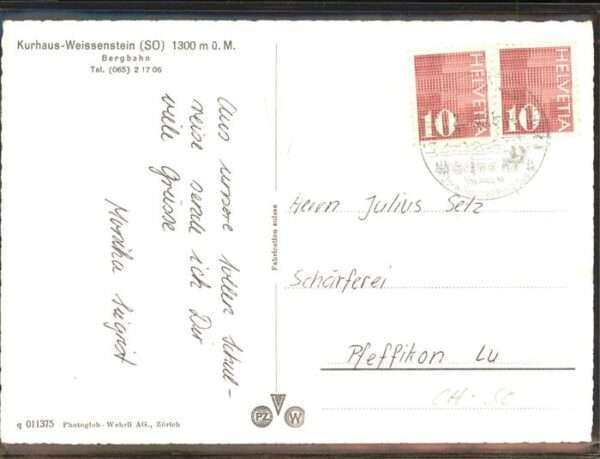 Kurhaus-Weissenstein (SO) 1300 m ü. M.
Bergbahn
Tel. (065) 2 17 06
Aus unsere tollen Schul-
reise sende ich Dir
viele Grüsse
Monika Sigrist
Fabrication suisse
HELVETIA
10
HELVETIA
10
Herrn Julius Selz
Schärferei
Pfeffikon Lu
CH - SO
q 011375 Photoglob-Wehrli AG., Zürich
PZ W